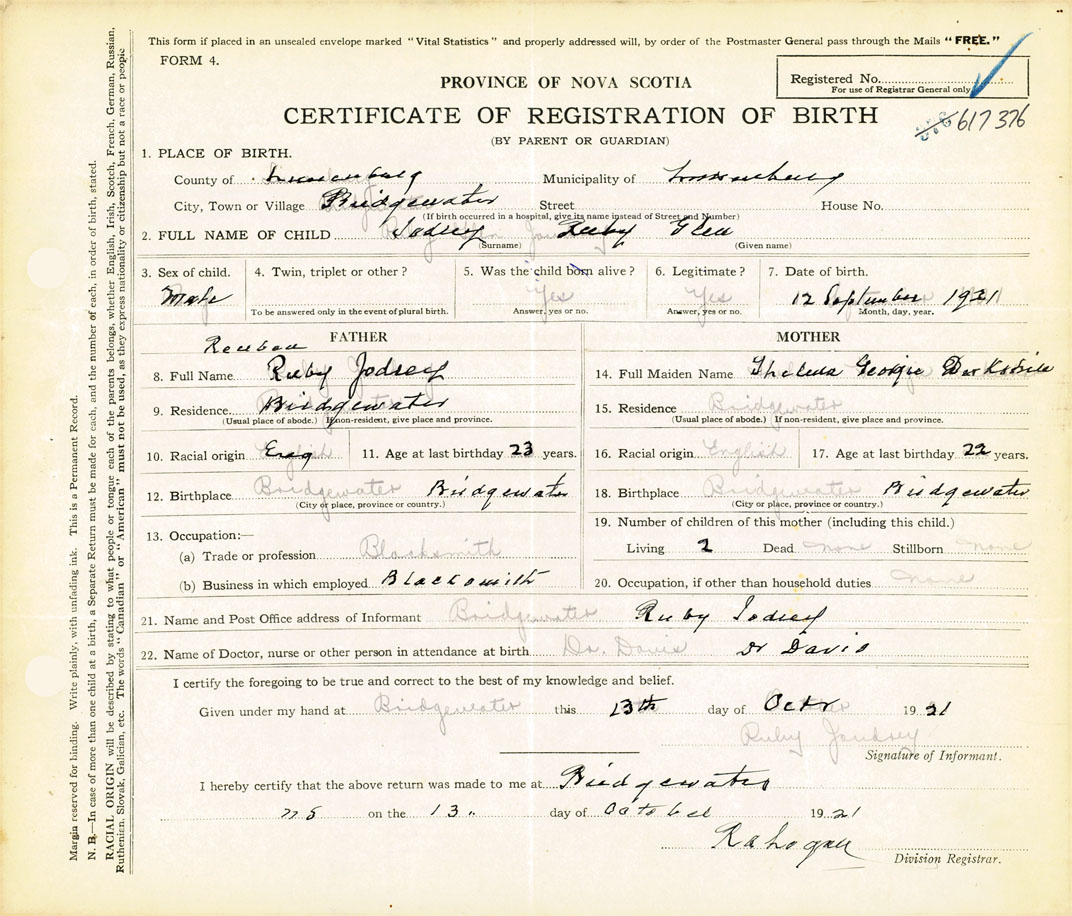 This form if placed in an unsealed envelope marked "Vital Statistics" and properly addressed will, by order of the Postmaster General pass through the Mails "FREE."
FORM 4.
Registered No.
For use of Registrar General only
617376
PROVINCE OF NOVA SCOTIA
CERTIFICATE OF REGISTRATION OF BIRTH
(BY PARENT OR GUARDIAN)
1. PLACE OF BIRTH.
County of Lunenburg Municipality of Lunenburg
City, Town or Village Bridgewater Street House No.
(If birth occurred in a hospital, give its name instead of Street and Number)
2. FULL NAME OF CHILD Jodrey Ruby Glen
(Surname) (Given name)
3. Sex of child. 4. Twin, triplet or other? 5. Was the child born alive? 6. Legitimate? 7. Date of birth.
Male Yes Yes 12 September 1921
To be answered only in the event of plural birth. Answer, yes or no. Answer, yes or no. Month, day, year.
FATHER MOTHER
Reuben
8. Full Name Ruby Jodrey 14. Full Maiden Name Thelma Georgie
9. Residence Bridgewater 15. Residence Bridgewater
(Usual place of abode.) If non-resident, give place and province. (Usual place of abode.) If non-resident, give place and province.
10. Racial origin English 11. Age at last birthday 23 years. 16. Racial origin English 17. Age at last birthday 22 years.
12. Birthplace Bridgewater Bridgewater 18. Birthplace Bridgewater Bridgewater
(City or place, province or country.) (City or place, province or country.)
13. Occupation:— 19. Number of children of this mother (including this child.)
(a) Trade or profession Blacksmith Living 2 Dead none Stillborn none
(b) Business in which employed Blacksmith 20. Occupation, if other than household duties none
21. Name and Post Office address of Informant Bridgewater Ruby Jodrey
22. Name of Doctor, nurse or other person in attendance at birth Dr. Davis Dr Davis
I certify the foregoing to be true and correct to the best of my knowledge and belief.
Given under my hand at Bridgewater this 13th day of Octr 1921
Ruby Joudrey
Signature of Informant.
I hereby certify that the above return was made to me at Bridgewater
N S on the 13 day of October 1921
Division Registrar.
Margin reserved for binding. Write plainly, with unfading ink. This is a Permanent Record.
N. B.—In case of more than one child at a birth, a Separate Return must be made for each, and the number of each, in order of birth, stated.
RACIAL ORIGIN will be described by stating to what people or tongue each of the parents belongs, whether English, Irish, Scotch, French, German, Russian,
Ruthenian, Slovak, Galician, etc. The words "Canadian" or "American" must not be used, as they express nationality or citizenship but not a race or people